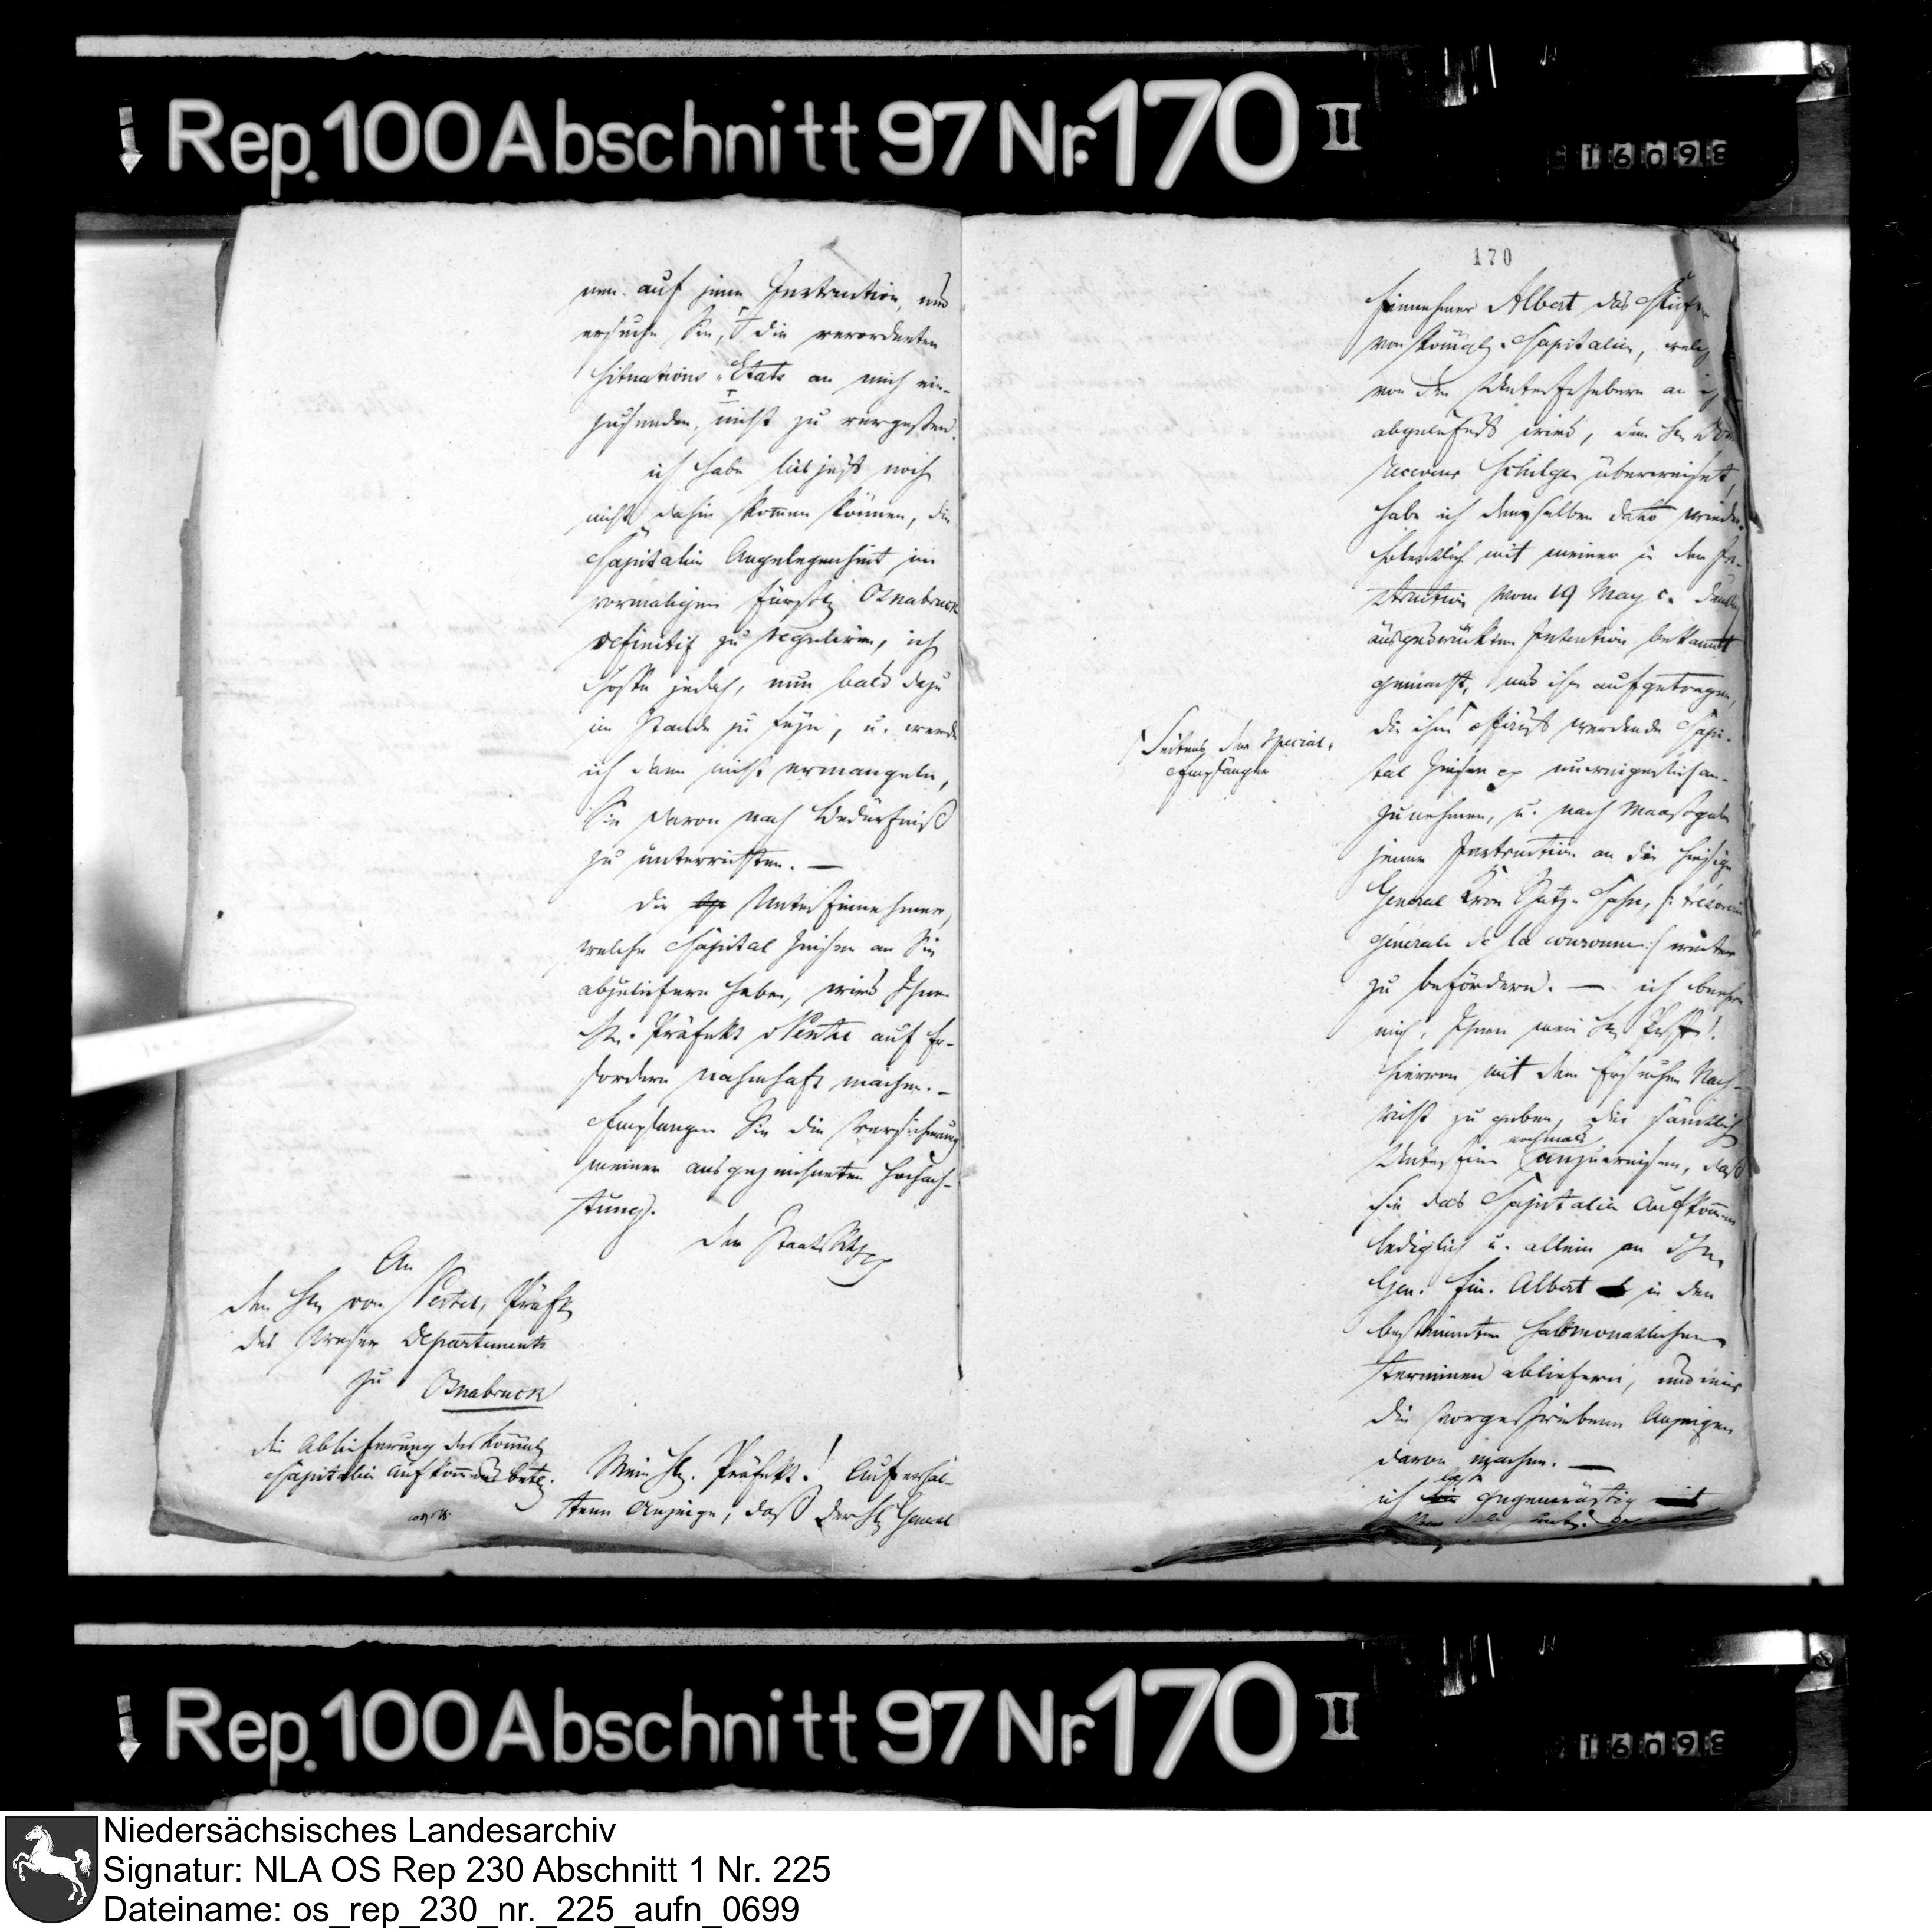 Rep. 100 Abschnitt 97 Nr. 170 II
16098
nen auf jene Instruction, und
ersuche Sie, die verordneten
Situations-Etats an mich ein-
zusenden, nicht zu vergessen.
ich habe bis jetzt noch
nicht dahin kommen können, die
Capitalien Angelegenheit im
vormaligen Fürstth Osnabruck
definitif zu reguliren, ich
hoffe jedoch, nun bald dazu
im Stande zu seyn, u. werde
ich dann nicht ermangeln,
Sie davon nach Bedürfniß
zu unterrichten. —
Die Unter Einnehmer,
welche Capital Zinsen an Sie
abzuliefern haben, wird Ihnen
Hr. Präfekt auf Er-
fordern nahmhaft machen. —
Empfangen Sie die Versicherung
meiner ausgezeichneten Hochach-
tung.
Der Staatsrath
An
den Hn von Pestel, Präfk
des Weser Departements
zu Osnabruck
die Ablieferung des
Capitalien Aufkommens betr.
Mein Hr. Präfekt! Auf erhal-
tene Anzeige, daß der Hr General
170
Einnehmer Albert das
von Königl. Capitalien, welch
von den Unter Erhebern an
abgeliefert wird, dem Hn
Receveur Schulgen überweiset,
habe ich demselben dato wieder-
holentlich mit meiner in der In-
struction vom 19 May c. deutlich
ausgedrückten Intention bekannt
gemacht, und ihm aufgetragen,
die ihm offerirt werdende Capi-
Seitens der Special-
Empfänger
tal Zinsen unweigerlich an-
zunehmen, u. nach Maaßgabe
jener Instruction an die hiesige
General Kron Schatz-Casse, (: trésorerie
générale de la couronne :) weiter
zu befördern. — ich beehre
mich, Ihnen mein Hr Präft!
hievon mit dem Ersuchen Nach-
richt zu geben, die sämtlich
nochmals
Unter Ein anzuweisen, daß
sie das Capitalien Aufkommen
lediglich u. allein an Hn
Gen. Ein. Albert in den
bestimmten halbmonatlichen
Terminen abliefern, und mir
die vorgeschriebenen Anzeigen
davon machen. —
ich gegenwärtig
Rep. 100 Abschnitt 97 Nr. 170 II
16098
Niedersächsisches Landesarchiv
Signatur: NLA OS Rep 230 Abschnitt 1 Nr. 225
Dateiname: os_rep_230_nr._225_aufn_0699